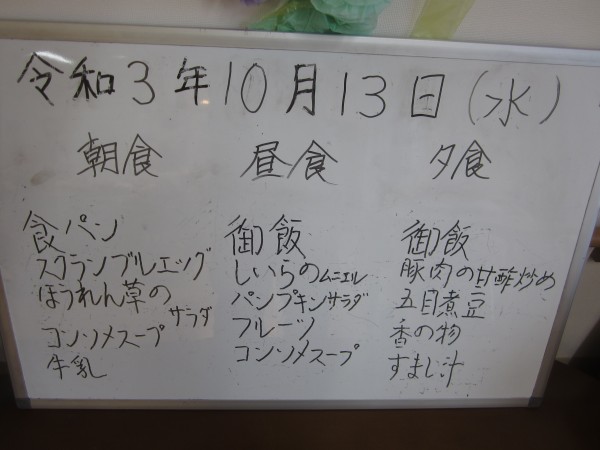 令和3年10月13日(水)
朝食
食パン
スクランブルエッグ
ほうれん草の
サラダ
コンソメスープ
牛乳
昼食
御飯
しいらのムニエル
パンプキンサラダ
フルーツ
コンソメスープ
夕食
御飯
豚肉の甘酢炒め
五目煮豆
香の物
すまし汁